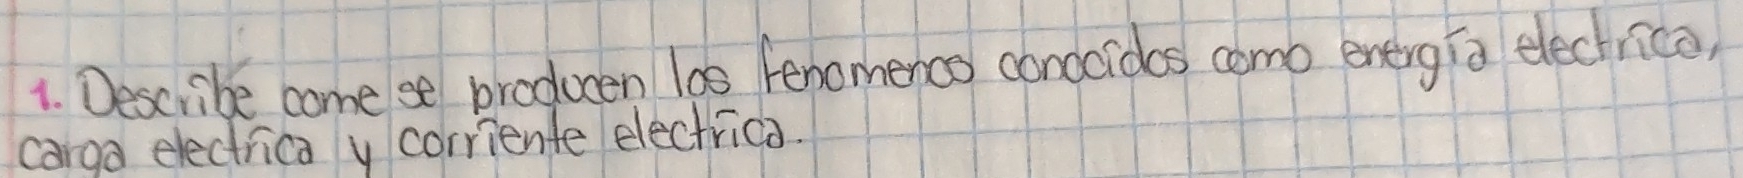 1. Describe come se producen los fenomenos conocidos como energía electrica,
carga electrica y corriente electrica.